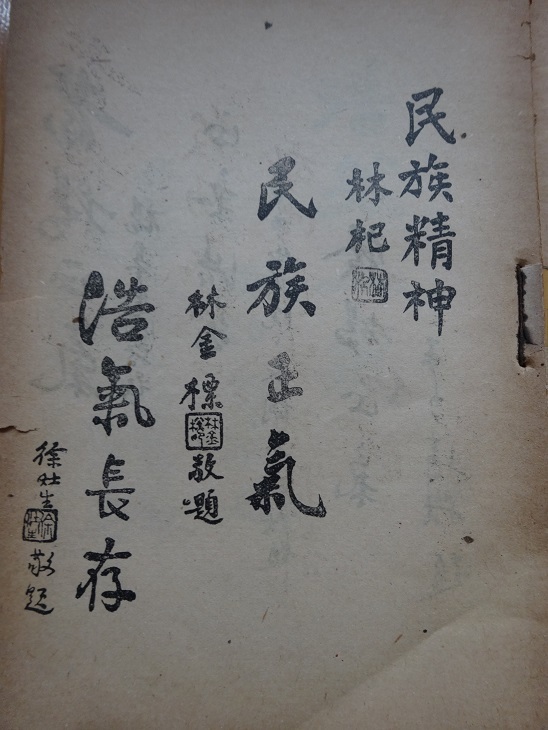 民族精神
林杞
民族正氣
林金標敬題
浩氣長存
徐灶生敬題